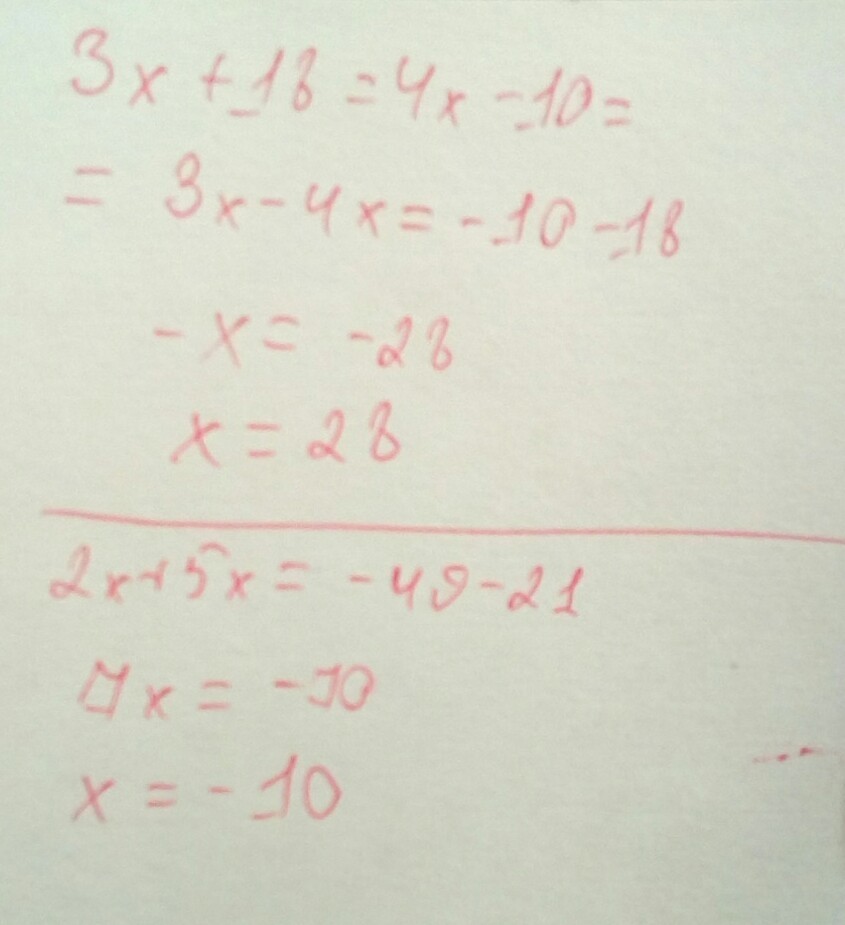 3x + 18 = 4x - 10 =
= 3x - 4x = -10 - 18
-x = -28
x = 28
2x + 5x = -49 - 21
7x = -70
x = -10